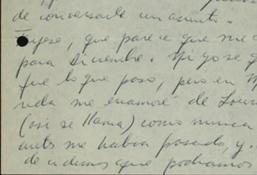 de conversarte un asunto.
Fíjese, que parece que me
para Diciembre. Ni yo se
fue lo que paso, pero en
vida me enamoré de
(así se llama) como nunca
antes me había pasado, y
de además que podríamos